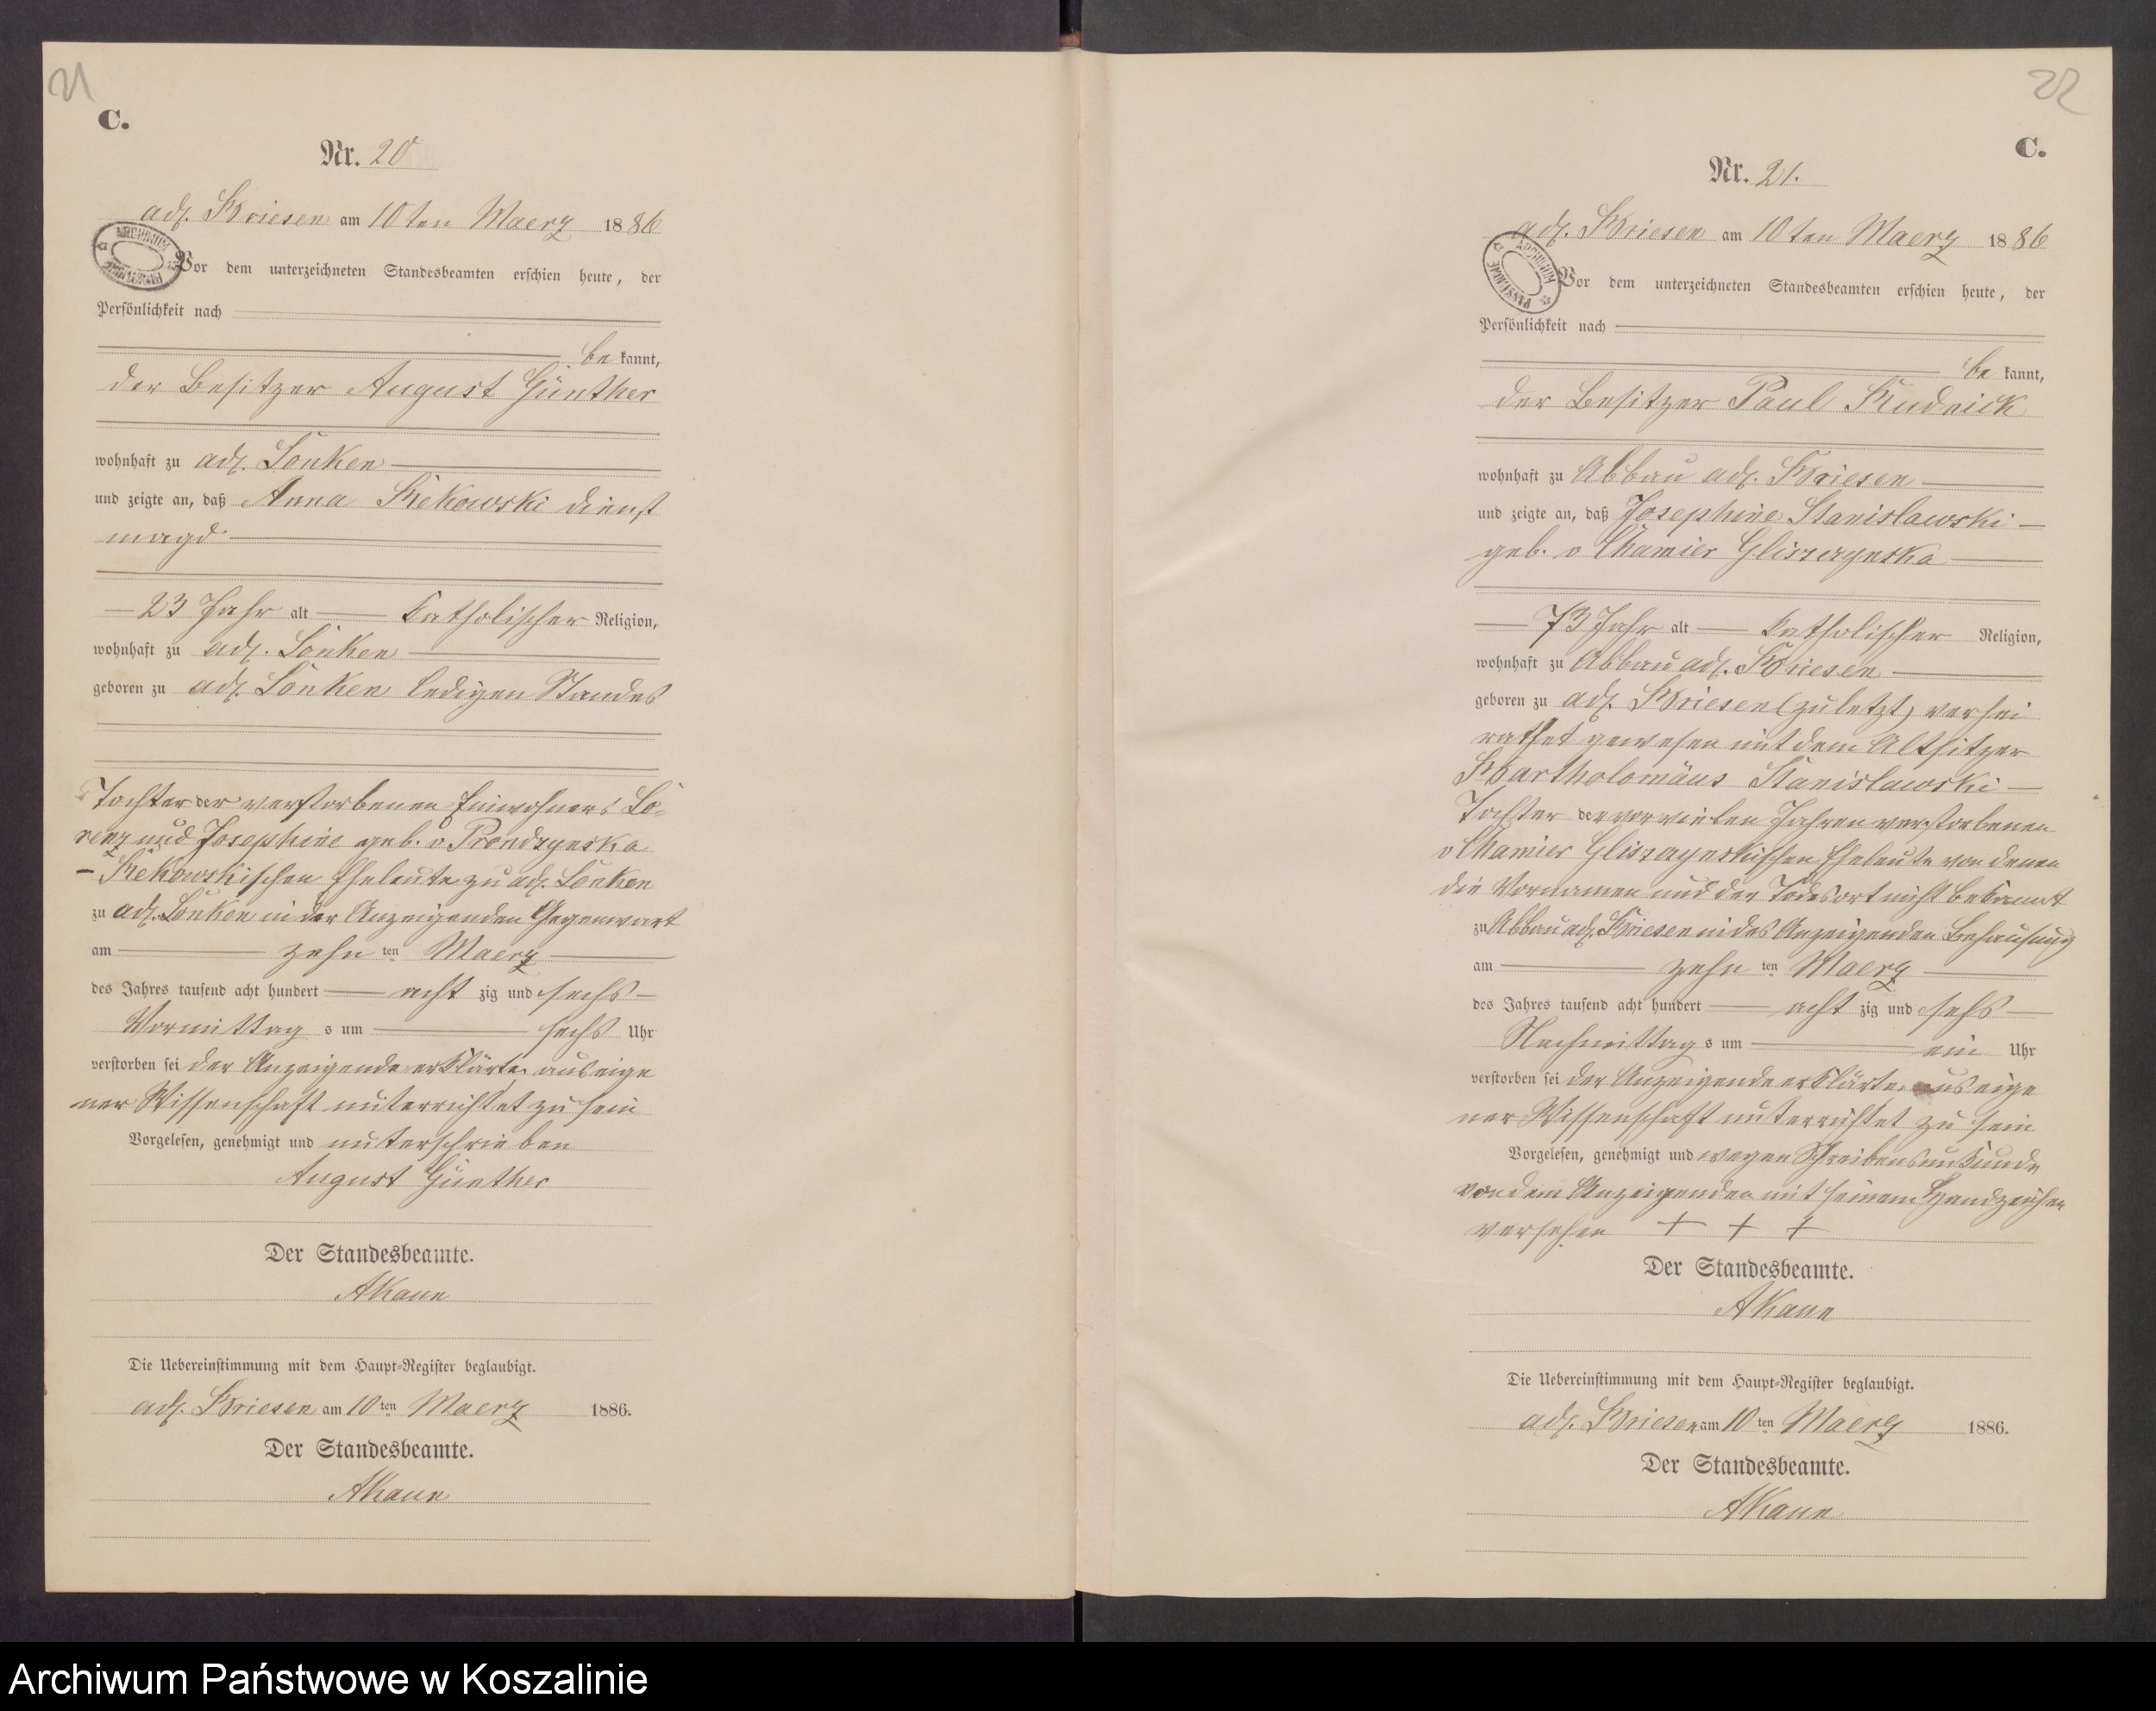 21
C.
Nr. 20
adl. Briesen am 10ten Maerz 1886
Vor dem unterzeichneten Standesbeamten erschien heute, der
Persönlichkeit nach
be kannt,
der Besitzer August Günther
wohnhaft zu adl. Lonken
und zeigte an, daß Anna Kiekowski dienst
magd
23 Jahr alt katholischer Religion,
wohnhaft zu adl. Lonken
geboren zu adl. Lonken ledigen Standes
Tochter der verstorbenen Einwohners Lo-
renz und Josephine geb. v Prondzynska
Kiekowskischen Eheleute zu adl. Lonken
zu adl. Lonken in der Anzeigenden Gegenwart
am zehn ten Maerz
des Jahres tausend acht hundert acht zig und sechs
Vormittag s um sechs Uhr
verstorben sei der Anzeigende erklärte, aus eige
ner Wissenschaft unterrichtet zu sein
Vorgelesen, genehmigt und unterschrieben
August Günther
Der Standesbeamte.
AKaun
Die Uebereinstimmung mit dem Haupt-Register beglaubigt.
adl. Briesen am 10 ten Maerz 1886.
Der Standesbeamte.
AKaun
22
C.
Nr. 21.
adl. Briesen am 10ten Maerz 1886
Vor dem unterzeichneten Standesbeamten erschien heute, der
Persönlichkeit nach
be kannt,
der Besitzer Paul Rudnick
wohnhaft zu Abbau adl. Briesen
und zeigte an, daß Josephine Stanislawski
geb. v Chamier Gliszczynska
73 Jahr alt katholischer Religion,
wohnhaft zu Abbau adl. Briesen
geboren zu adl. Briesen (zuletzt) verhei
rathet gewesen mit dem Altsitzer
Bartholomäus Stanislawski
Tochter der vor vielen Jahren verstorbenen
v Chamier Gliszczynskischen Eheleute von denen
die Vornamen und der Todesort nicht bekannt
zu Abbau adl. Briesen in des Anzeigenden Behausung
am zehn ten Maerz
des Jahres tausend acht hundert acht zig und sechs
Nachmittag s um ein Uhr
verstorben sei der Anzeigende erklärte, aus eige
ner Wissenschaft unterrichtet zu sein
Vorgelesen, genehmigt und wegen Schreibensunkunde
von dem Anzeigenden mit seinem Handzeichen
versehen + + +
Der Standesbeamte.
AKaun
Die Uebereinstimmung mit dem Haupt-Register beglaubigt.
adl. Briesen am 10 ten Maerz 1886.
Der Standesbeamte.
AKaun
Archiwum Państwowe w Koszalinie